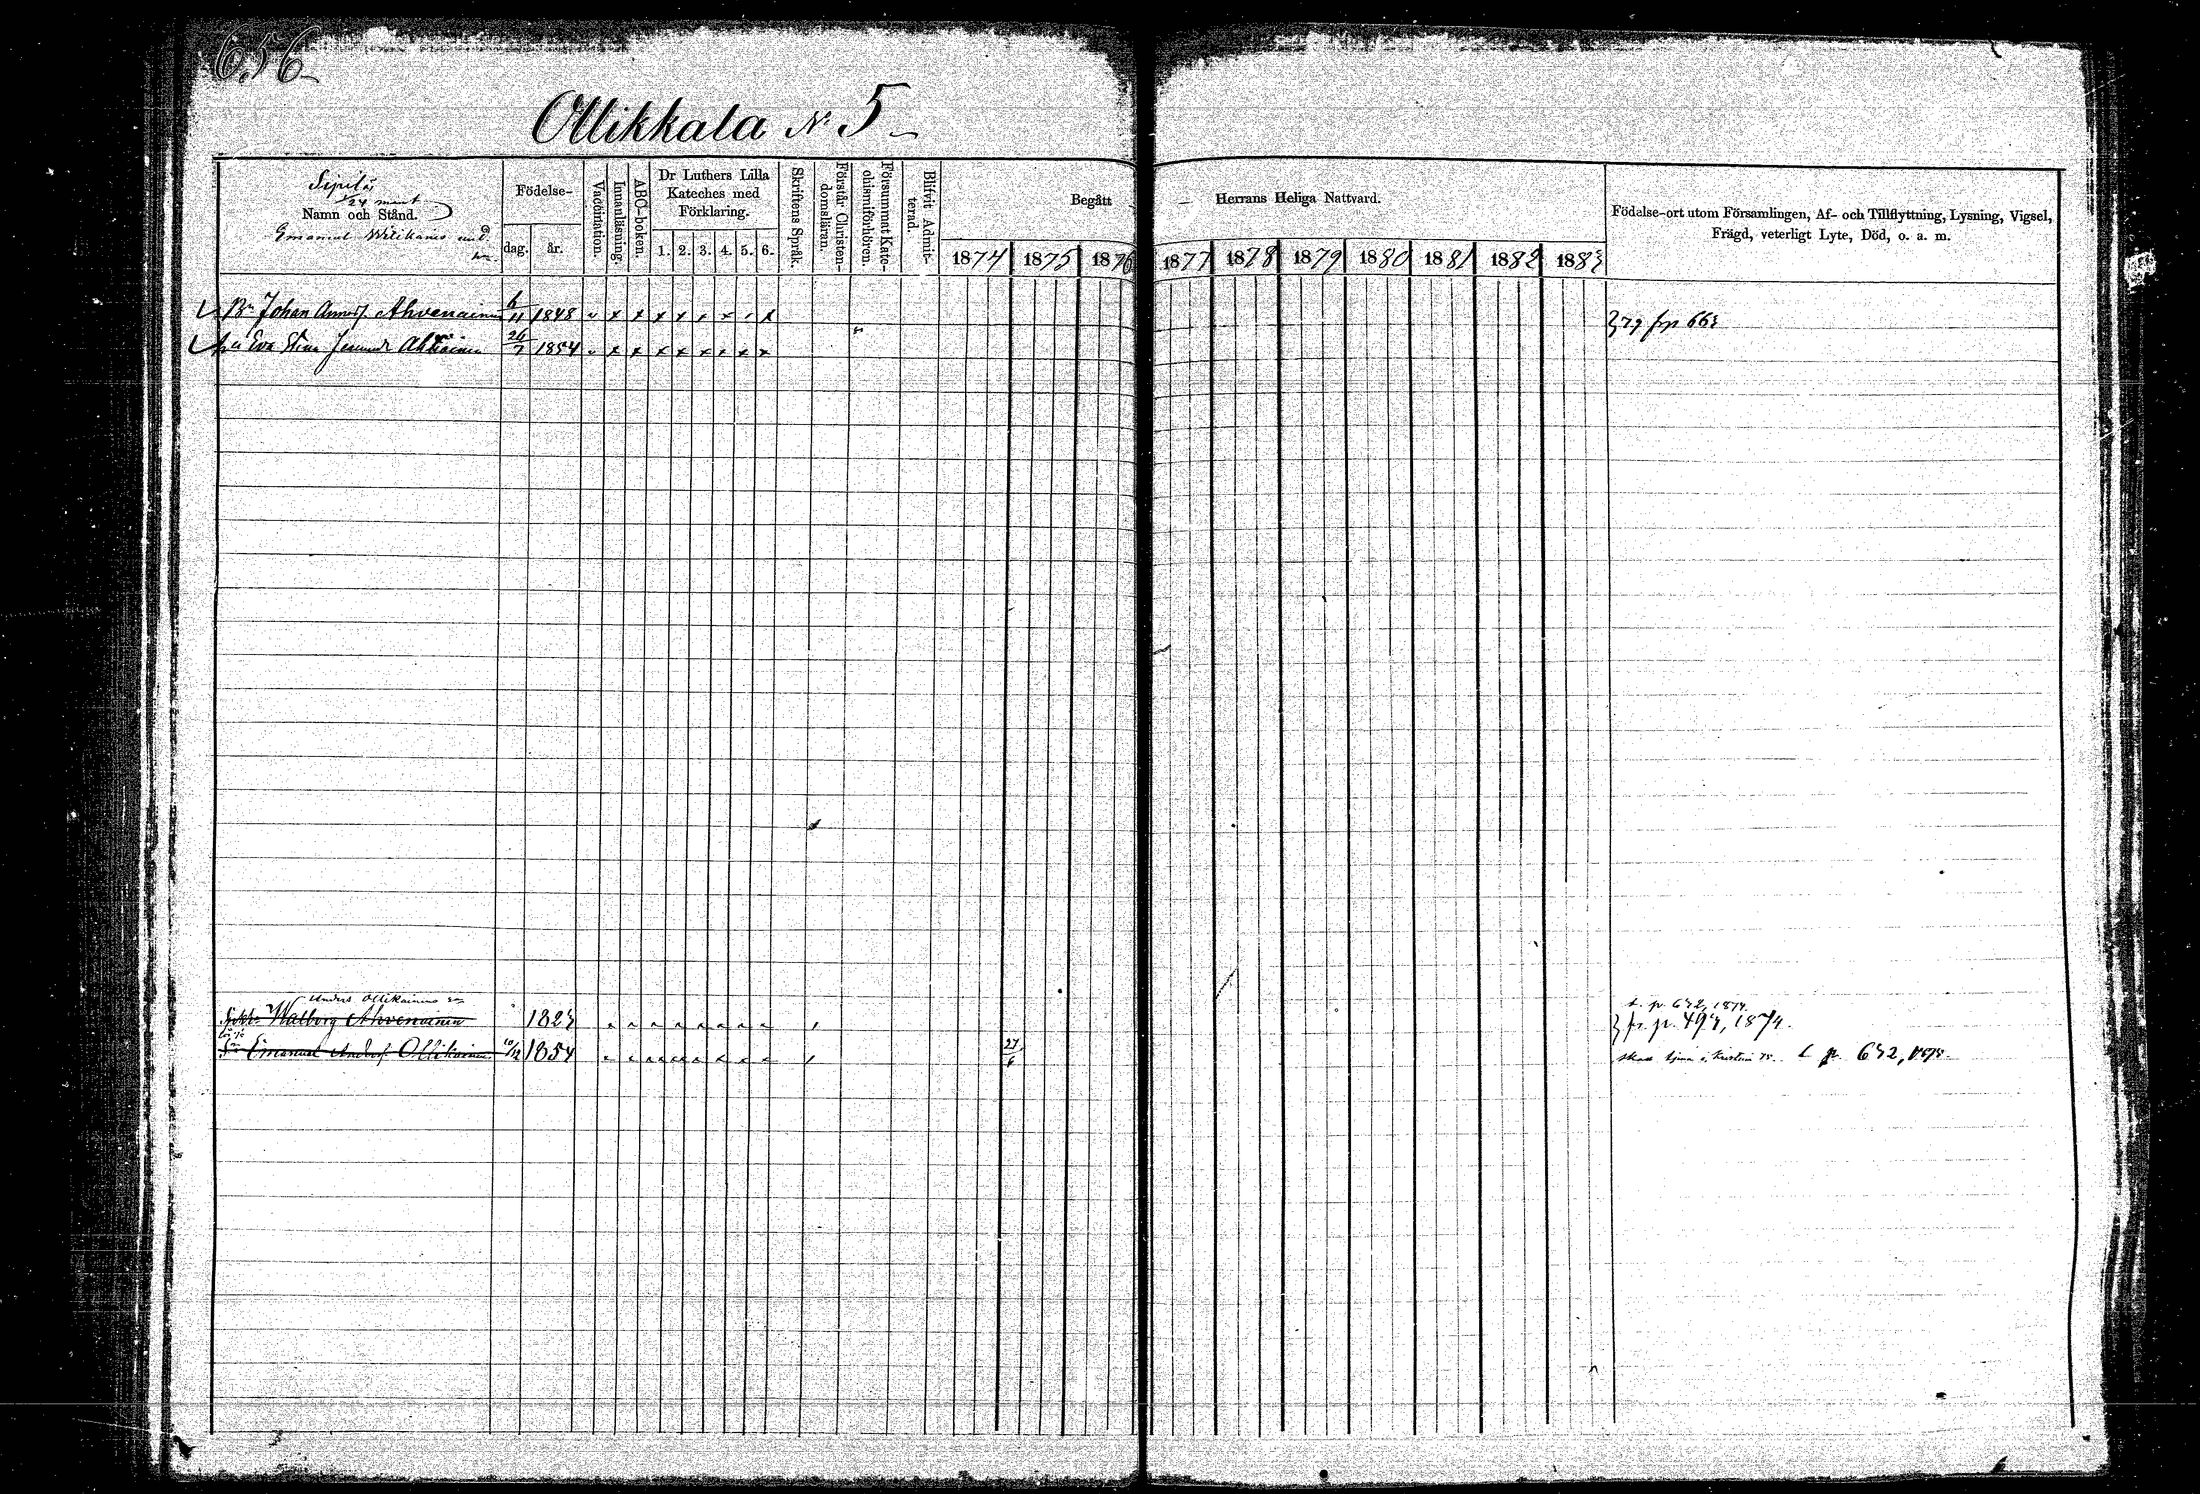 656
Ollikkala No 5
Sipilä
24 mant
Namn och Stånd.
Emanuel
Födelse-
dag.
år.
Vaccination.
Innanläsning.
ABC-boken.
Dr Luthers Lilla
Kateches med
Förklaring.
1. 2. 3. 4. 5. 6.
Skriftens Språk.
Förstår Christen-
domsläran.
Försummat Kate-
chismiförhören.
Blifvit Admit-
terad.
Begått
Herrans Heliga Nattvard.
1874 1875 1876 1877 1878 1879 1880 1881 1882 1883
Födelse-ort utom Församlingen, Af- och Tillflyttning, Lysning, Vigsel,
Frägd, veterligt Lyte, Död, o. a. m.
Johan Andersf. Ahvenainen 6/11 1848
79 frp 663
Eva Stina 26/7 1854
Anders Ollikainens
t. p. 632, 1874.
Walborg Ahvenainen 1823
fr. p. 493, 1874.
Emanuel Andersf. Ollikainen 10/12 1854
27/6
t p. 632, 1875.